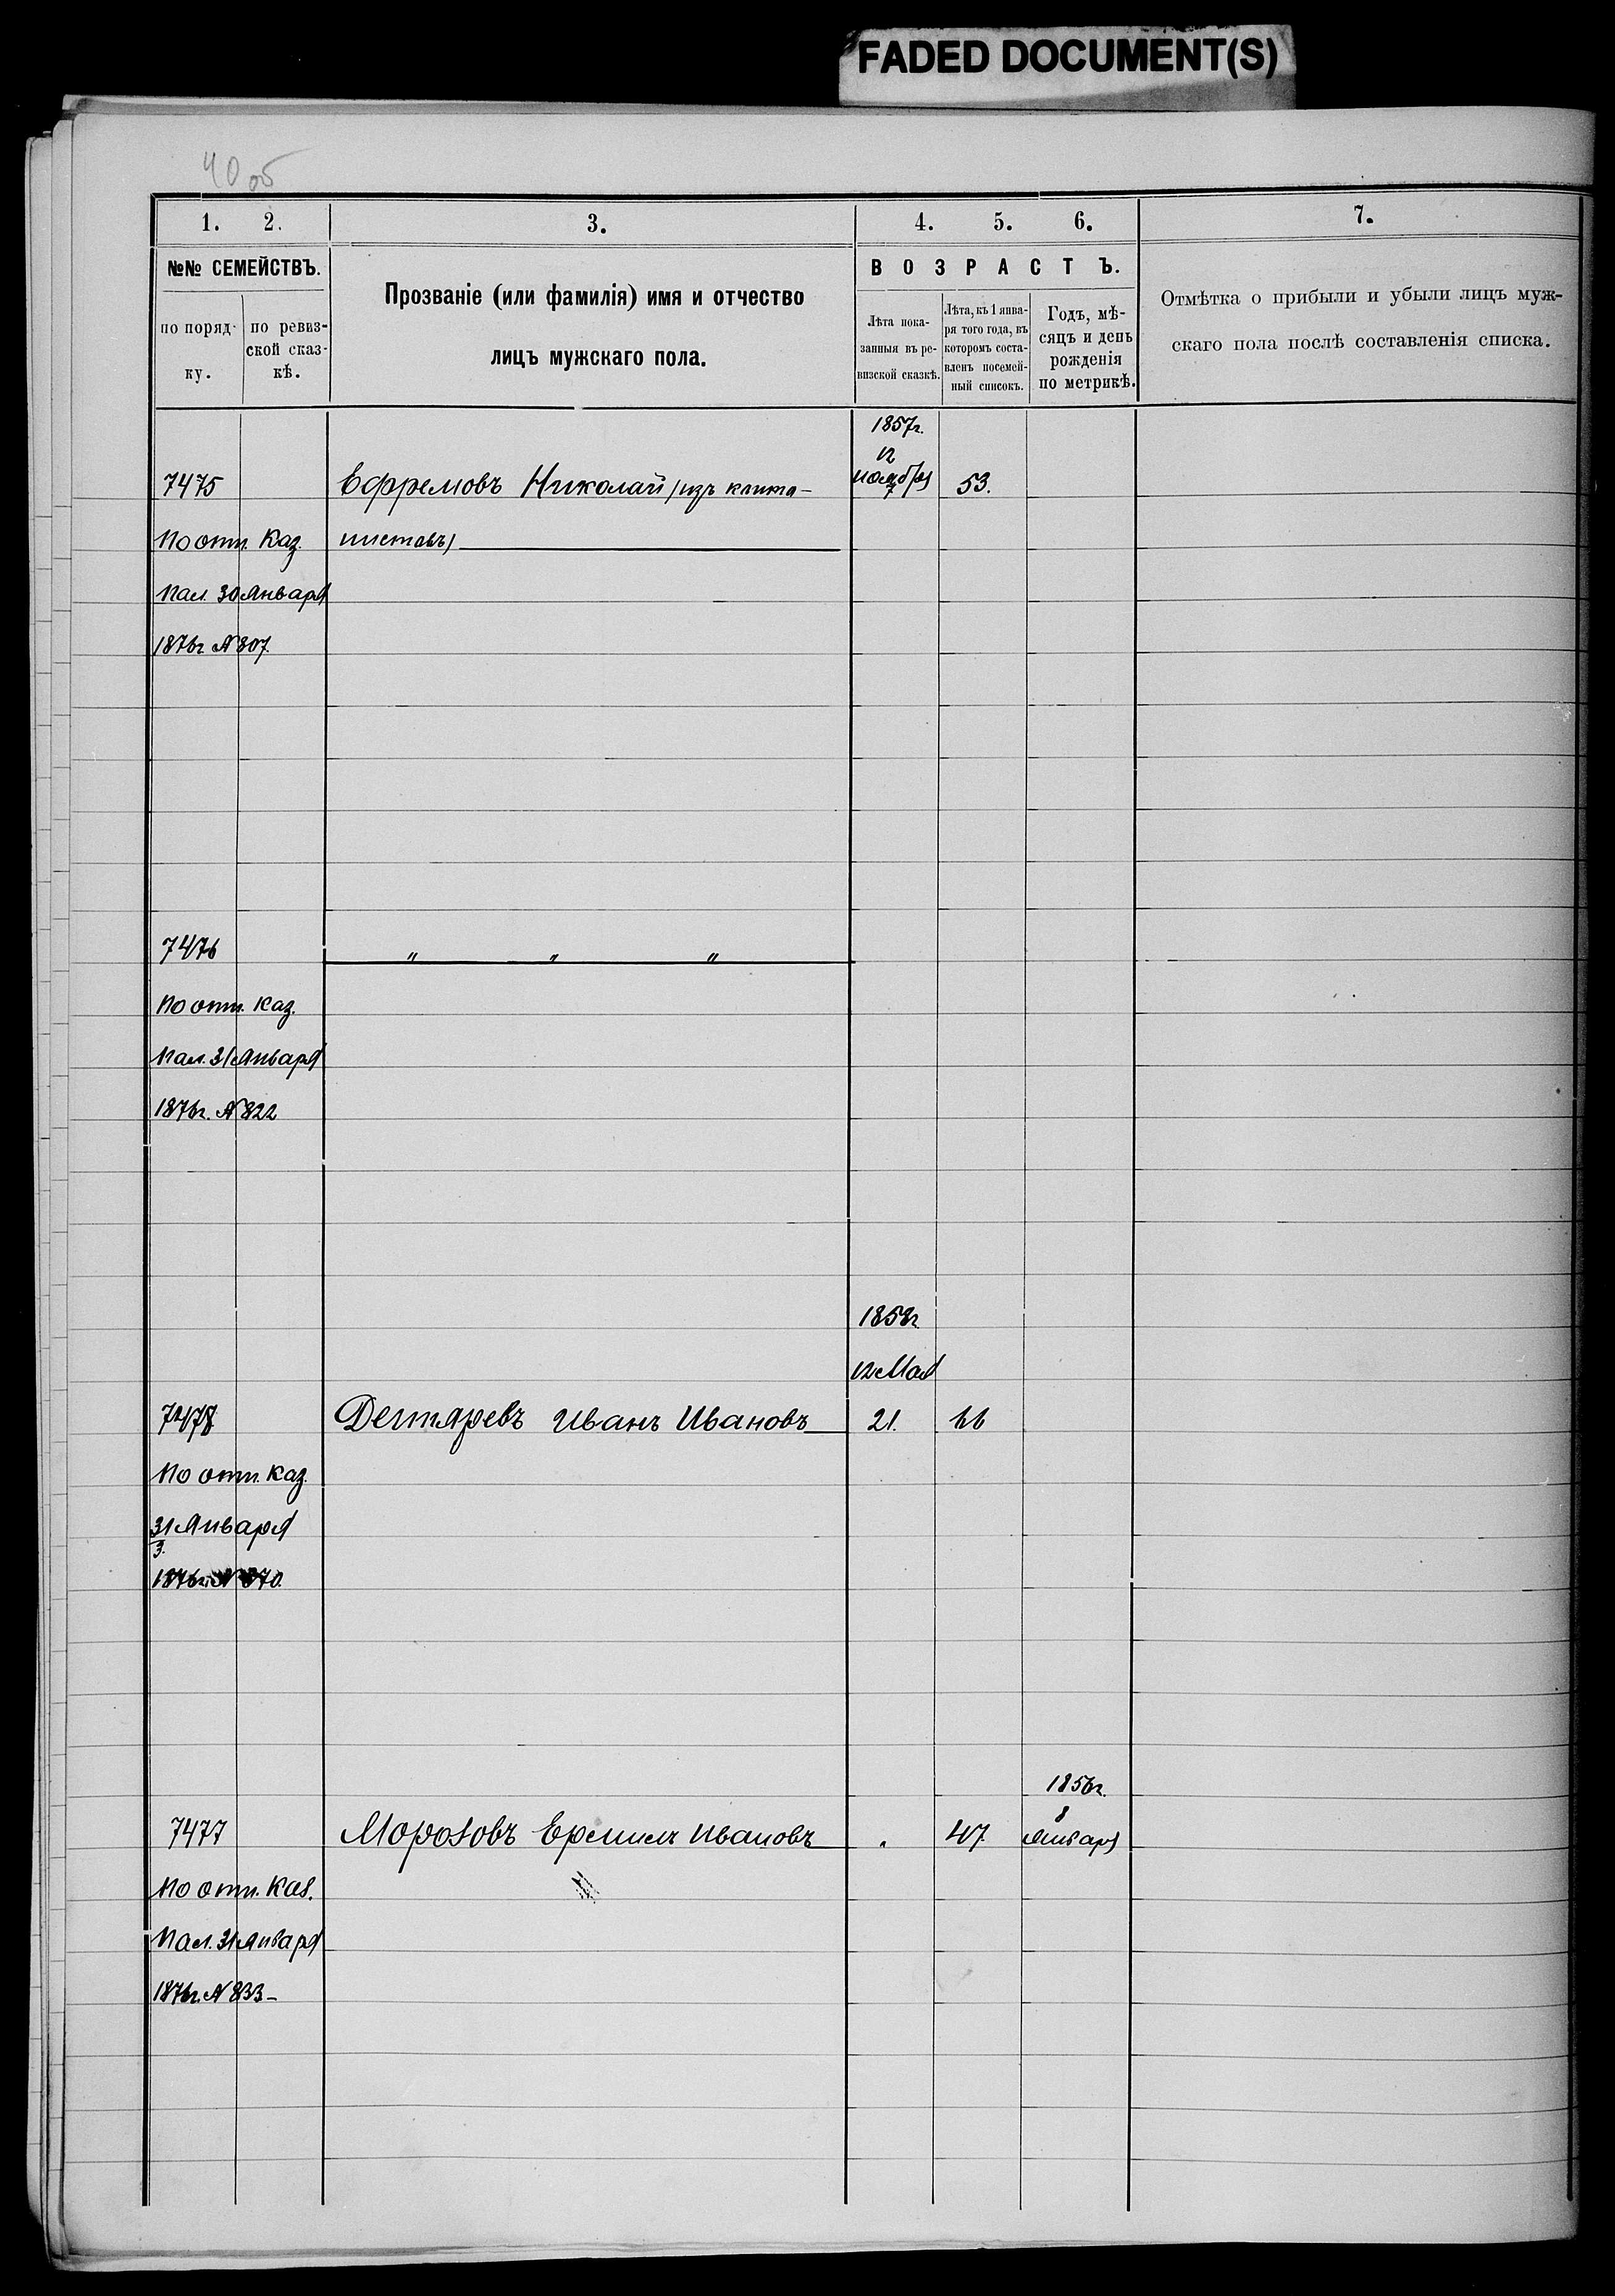 FADED DOCUMENT(S)
40 об
1. 2. 3. 4. 5. 6. 7.
№№ СЕМЕЙСТВЪ.
по поряд-
ку.
по ревиз-
ской сказ-
кѣ.
Прозваніе (или фамилія) имя и отчество
лицъ мужскаго пола.
ВОЗРАСТЪ.
Лѣта пока-
занныя въ ре-
визской сказкѣ.
Лѣта, къ 1 янва-
ря того года, въ
которомъ соста-
вленъ посемей-
ный списокъ.
Годъ, мѣ-
сяцъ и день
рожденія
по метрикѣ.
Отмѣтка о прибыли и убыли лицъ муж-
скаго пола послѣ составленія списка.
1857г.
12
7475 Ефремовъ Николай (изъ канто- ноября 53.
7
По отн. Каз. нистовъ)
Пал. 30 Января
1876г. № 807.
7476 " " "
По отн. Каз.
Пал. 31 Января
1876г. № 822
1858г.
12 Мая
7478 Дегтяревъ Иванъ Ивановъ 21. 66
По отн. Каз.
31 Января
3.
1876г. № 870.
1856г.
8
7477 Морозовъ Ермилъ Ивановъ " 47. Января
По отн. Каз.
Пал. 31 Января
1876г. № 833-